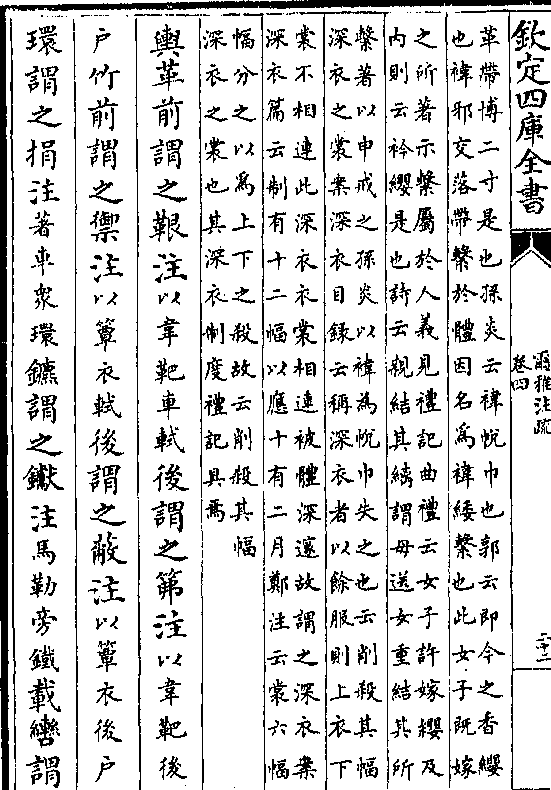 欽定四庫全書
爾雅注疏
卷四
二十二
革帶博二寸是也孫炎云褘帨巾也郭云即今之香纓
也褘邪交落帶繫於體因名為褘緌繫也此女子既嫁
之所著示繫屬於人義見禮記曲禮云女子許嫁纓及
内則云衿纓是也詩云親結其縭謂母送女重結其所
繫著以申戒之孫炎以褘為帨巾失之也云削殺其幅
深衣之裳案深衣目錄云稱深衣者以餘服則上衣下
裳不相連此深衣衣裳相連被體深邃故謂之深衣案
深衣篇云制有十二幅以應十有二月鄭注云裳六幅
幅分之以為上下之殺故云削殺其幅
深衣之裳也其深衣制度禮記具焉
輿革前謂之鞎注以韋靶車軾後謂之第注以韋靶後
户竹前謂之禦注以簟衣軾後謂之蔽注以簟衣後户
環謂之捐注著車衆環鑣謂之钀注馬勒旁鐵載轡謂